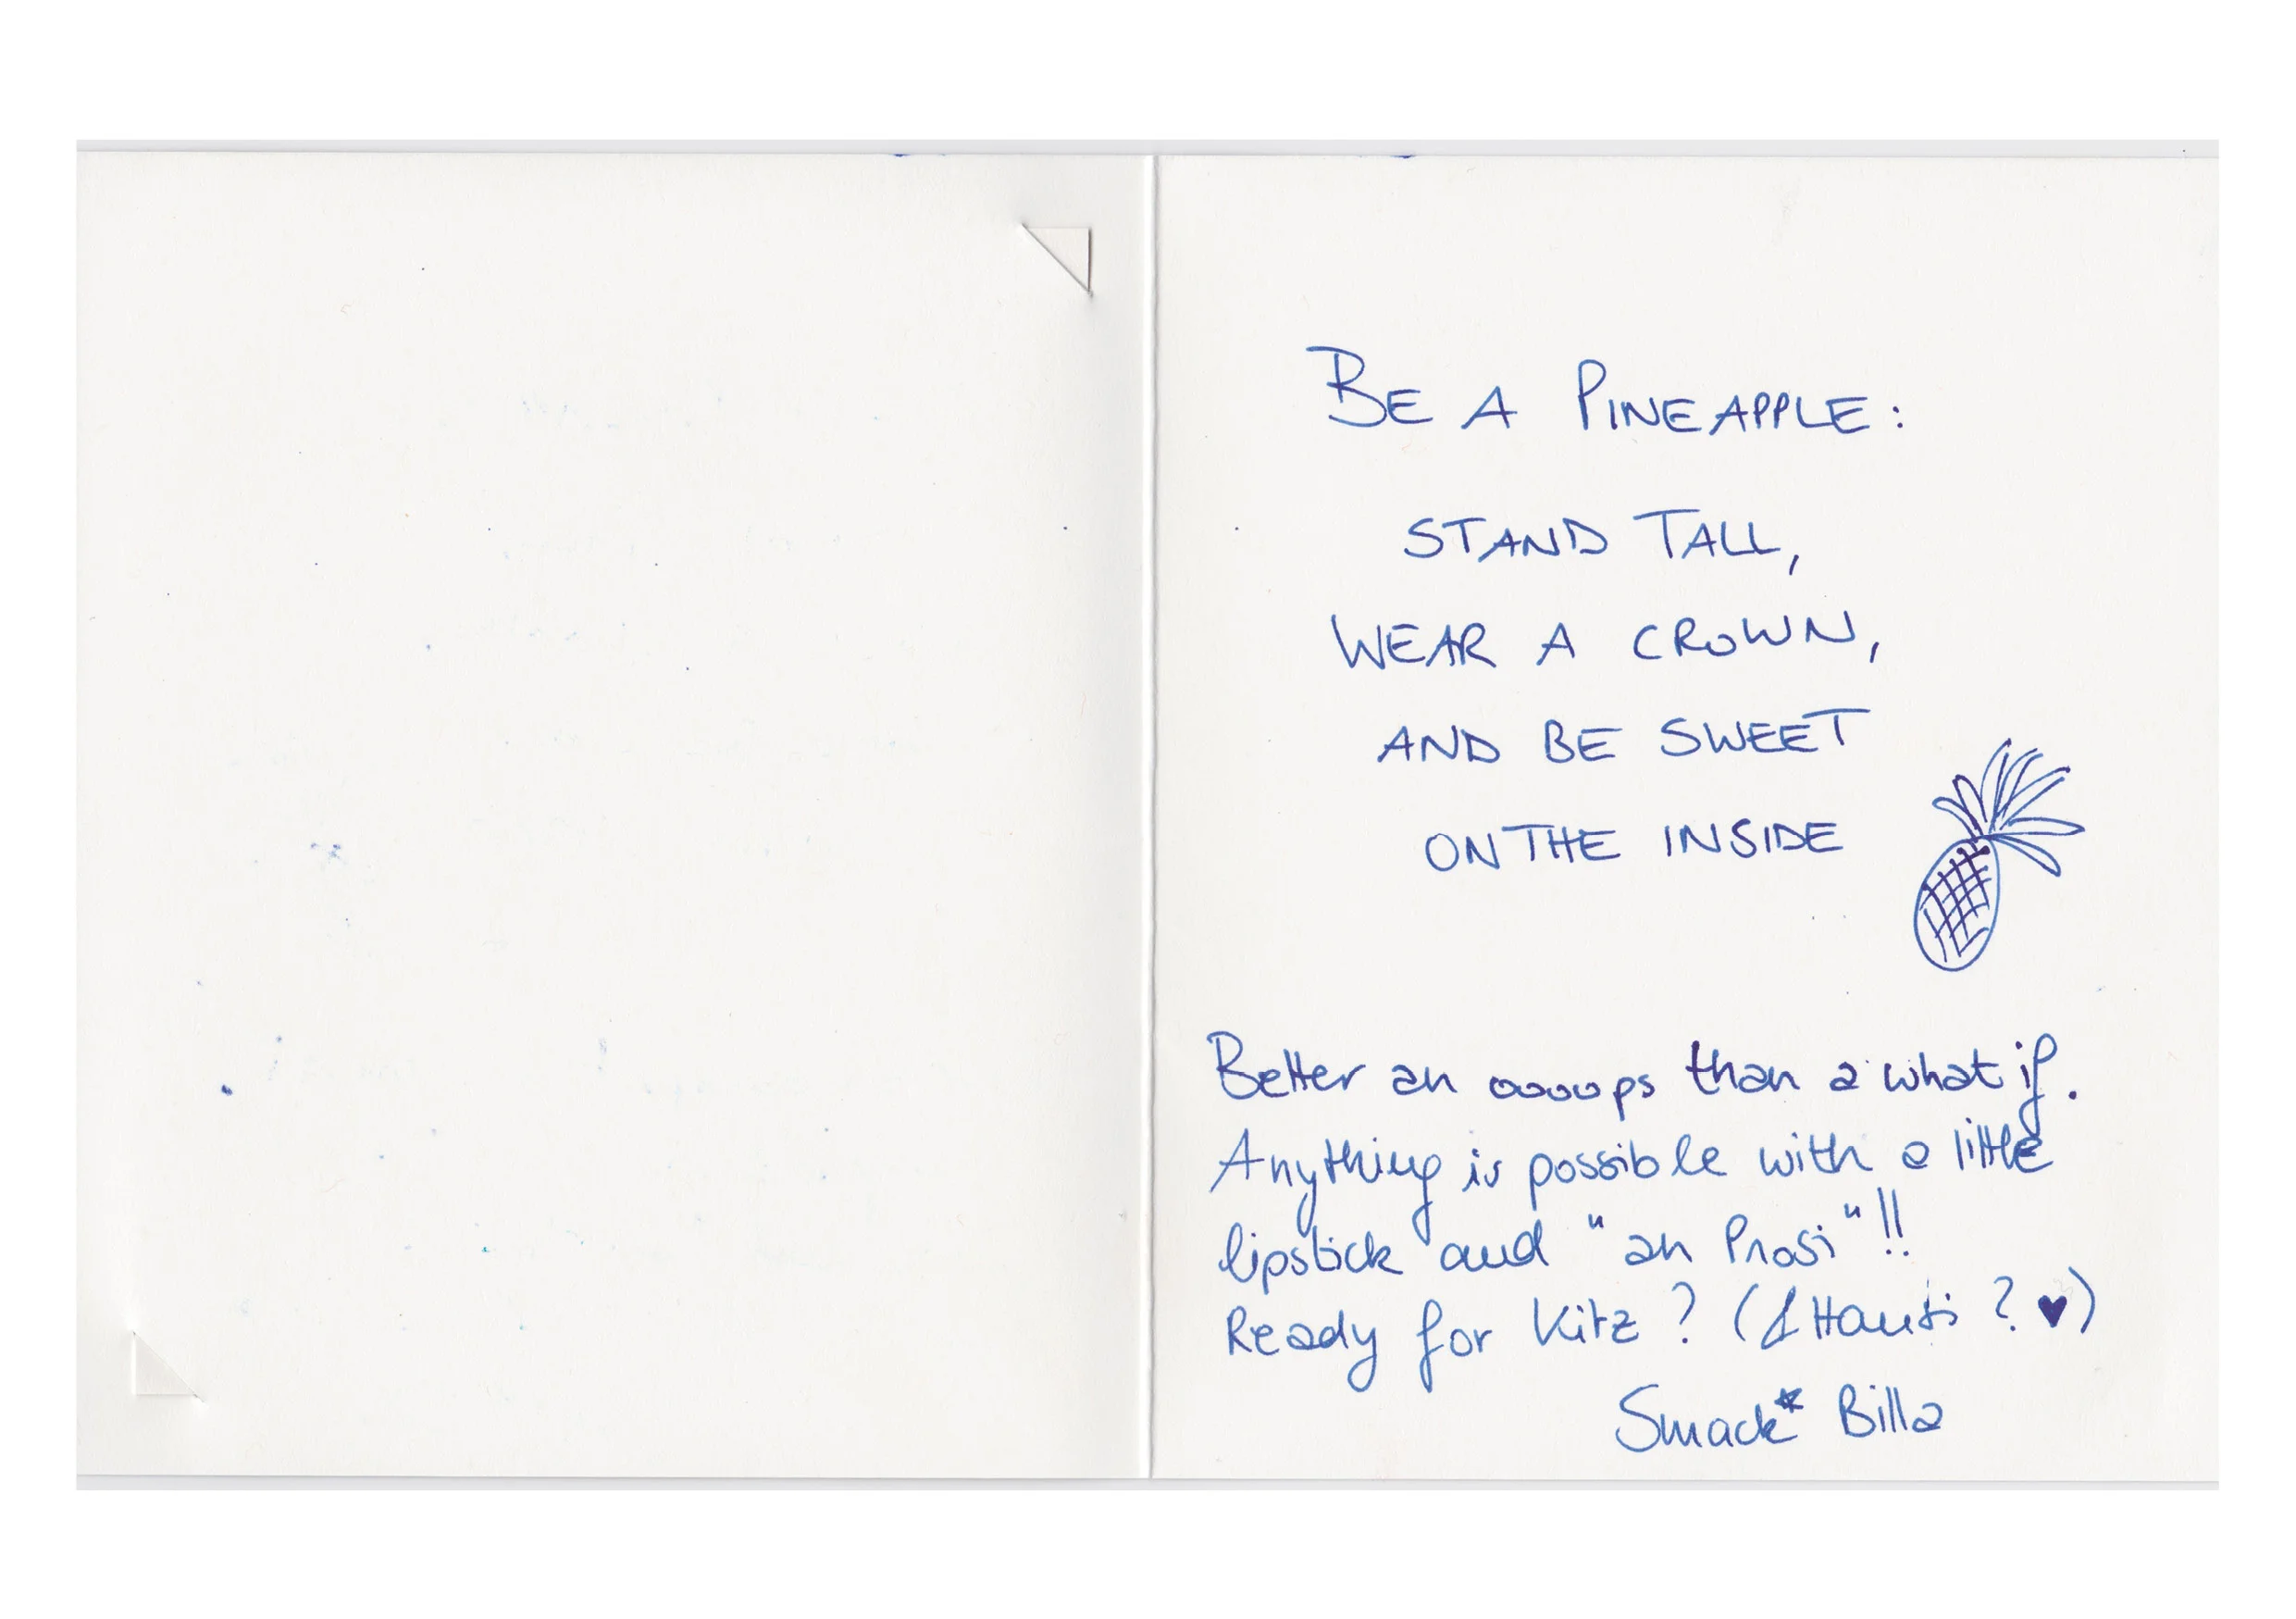 BE A PINEAPPLE:
STAND TALL,
WEAR A CROWN,
AND BE SWEET
ON THE INSIDE
Better an oooops than a what if.
Anything is possible with a little
lipstick and "an Prosi"!!
Ready for Kitz? (& ? ♥)
Smack* Billa